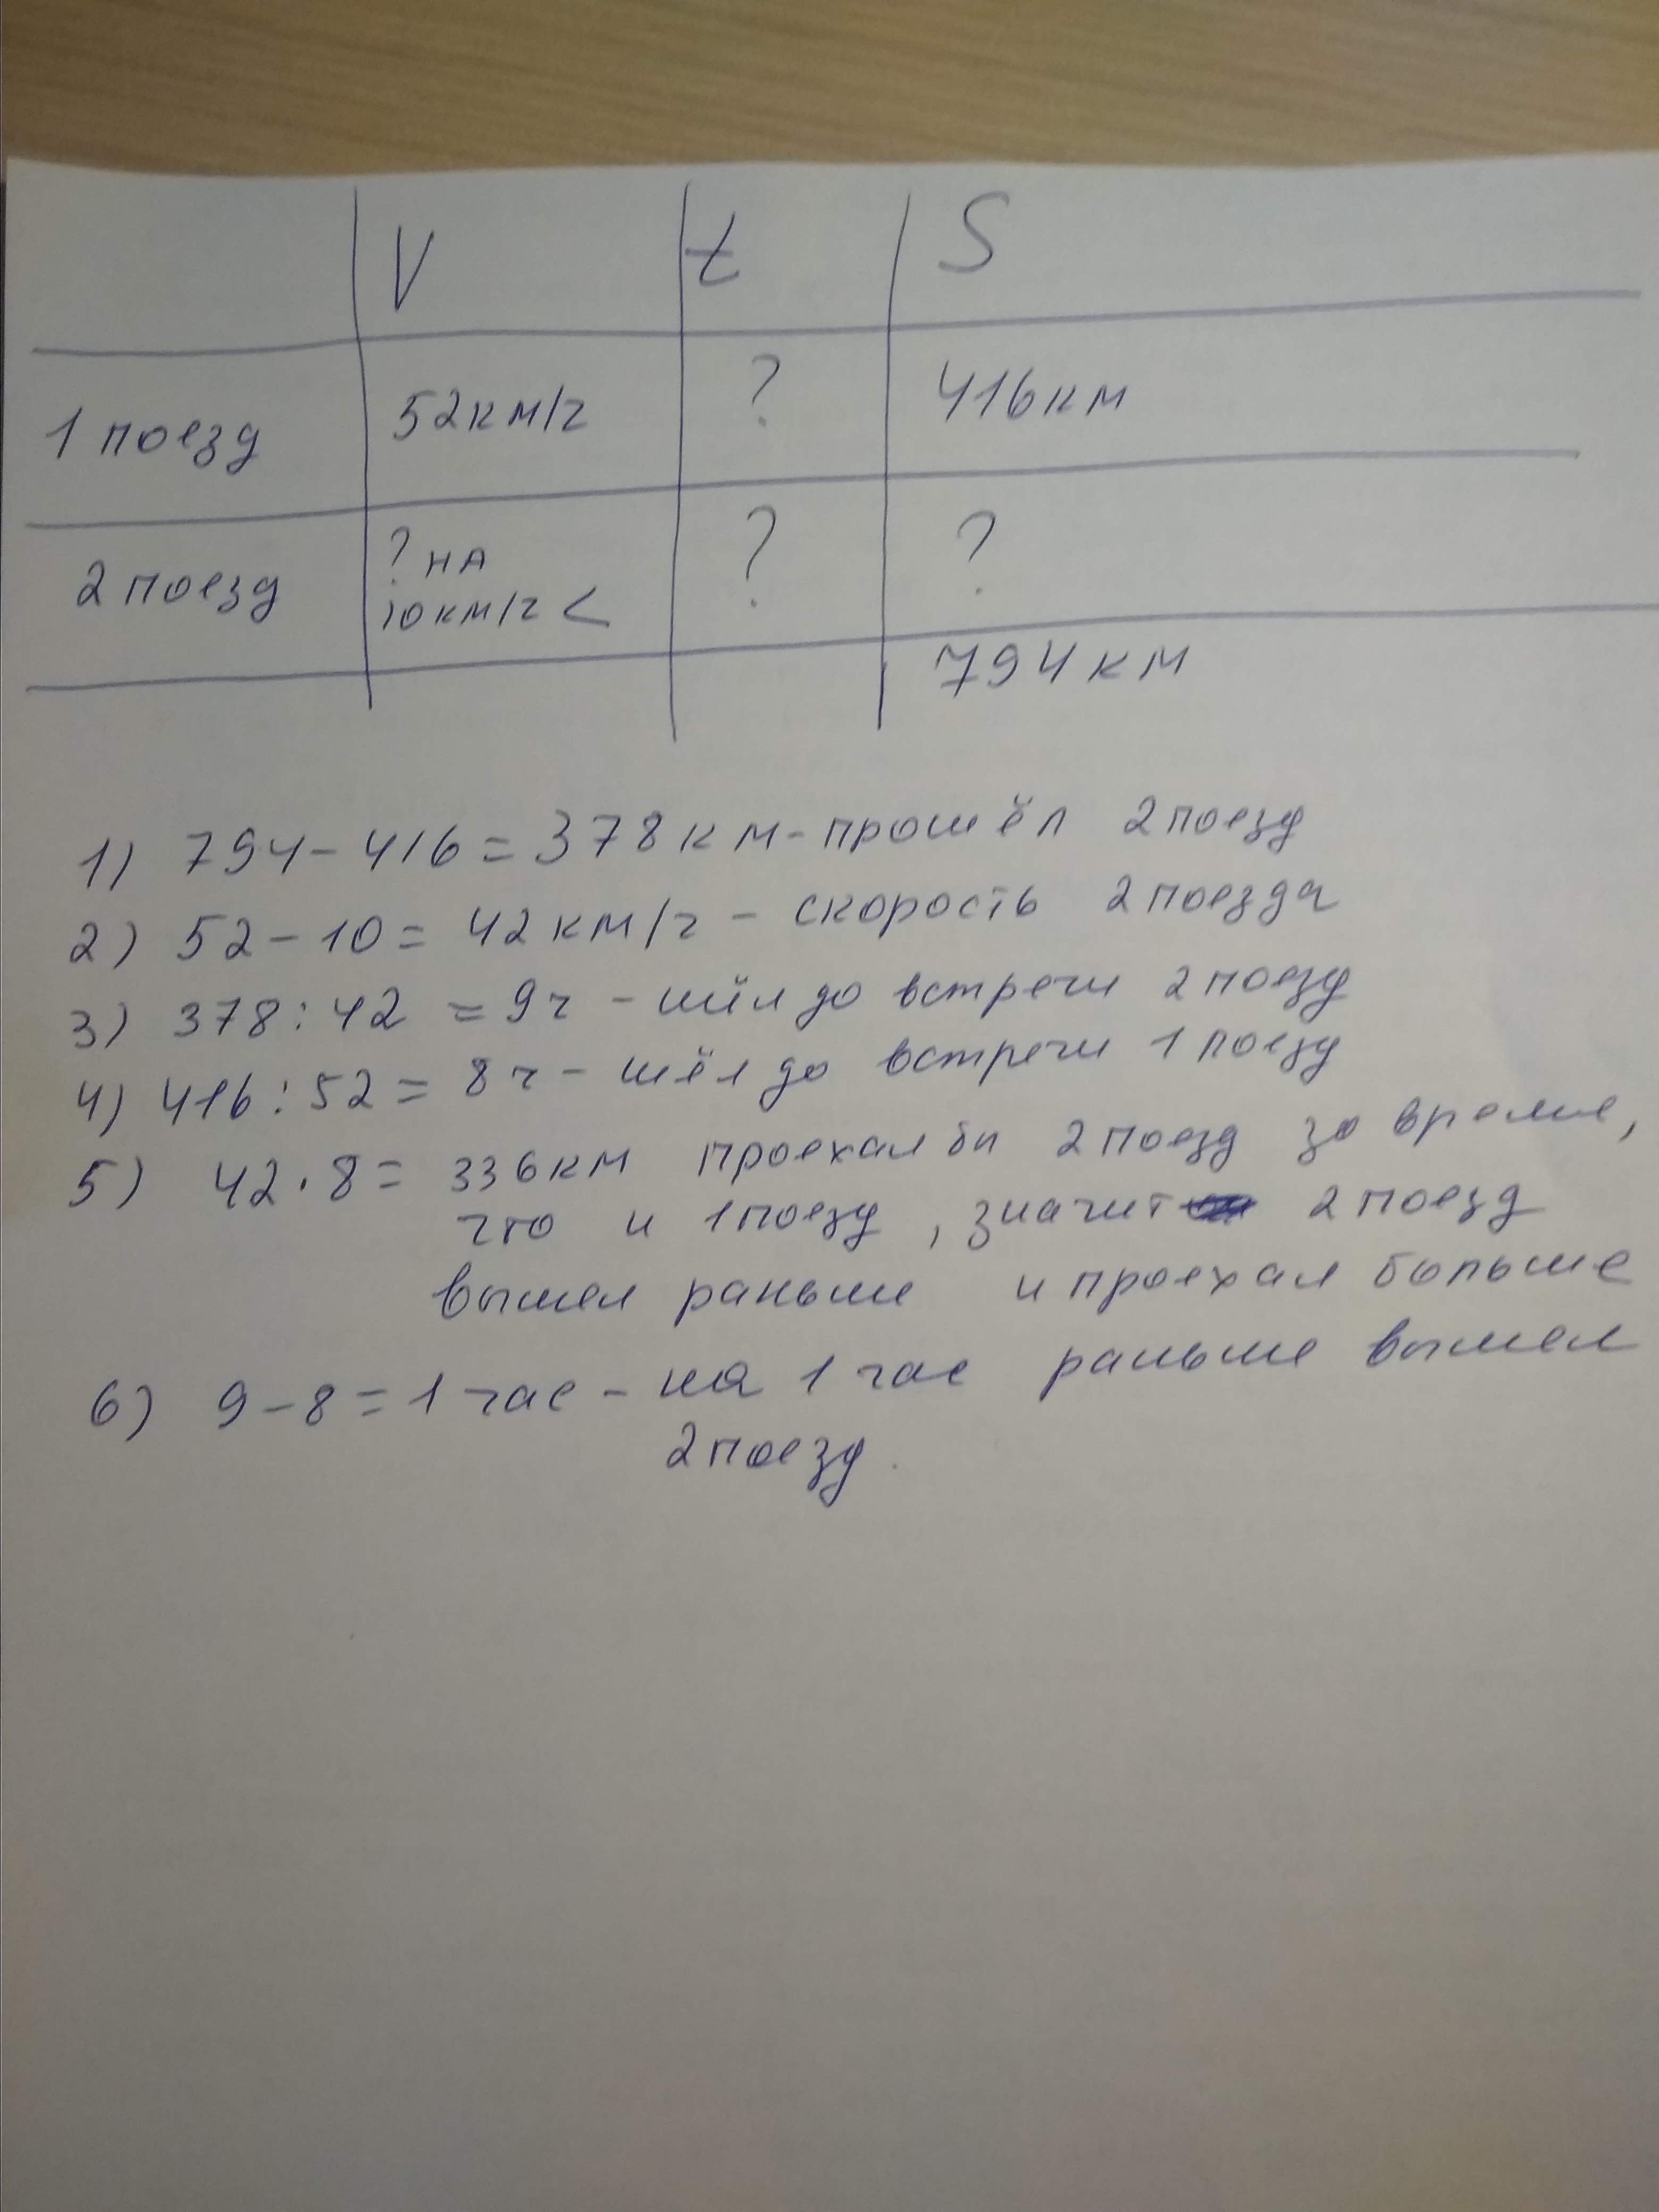 V t S
1 поезд 52км/ч ? 416км
2 поезд ? на 10км/ч < ? ?
794 км
1) 794-416=378км-прошёл 2 поезд
2) 52-10=42км/ч - скорость 2 поезда
3) 378:42 =9ч - шёл до встречи 2 поезд
4) 416:52=8ч- шёл до встречи 1 поезд
5) 42·8= 336км проехал бы 2 поезд за время,
что и 1 поезд, значит 2 поезд
вышел раньше и проехал больше
6) 9-8=1 час - на 1 час раньше вышел
2 поезд.